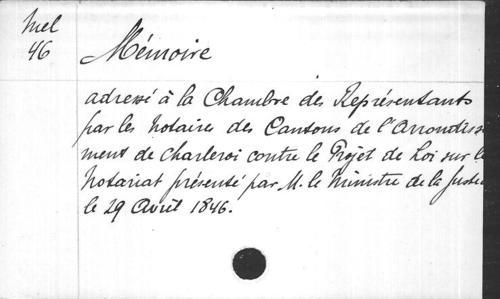 Mel
46
Mémoire
adressé à la Chambre des Représentants
par les Notaires des Cantons de l'Arrondisse
ment de Charleroi contre le Projet de Loi sur le
Notariat présenté par M. le Ministre de la Justice
le 29 Avril 1846.